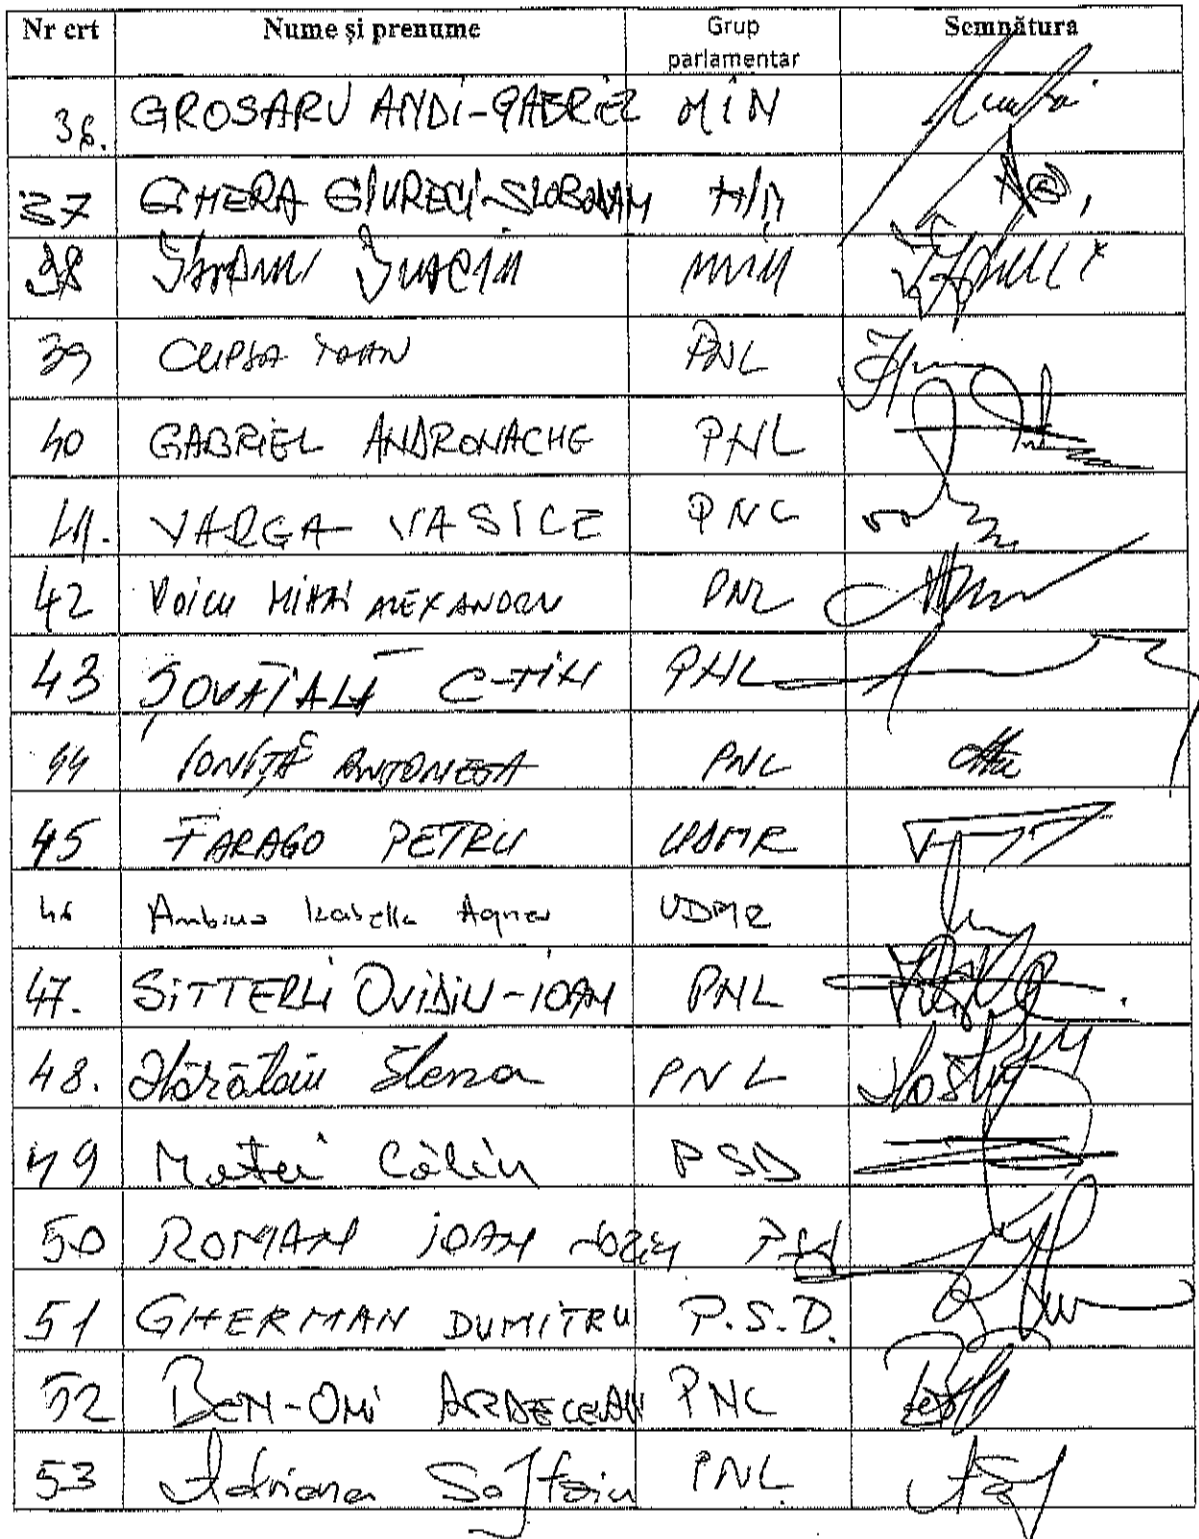 Nr crt Nume și prenume Grup parlamentar Semnătura
36. GROSARU ANDI-GABRIEL MIN
37 GHERA GIURECI-SLOBODAN MIN
38
39 CUPȘA IOAN PNL
40 GABRIEL ANDRONACHE PNL
41. VARGA VASILE PNL
42 VOICU MIHAI ALEXANDRU PNL
43 ȘOVĂIALĂ C-TIN PNL
44 IONIȚĂ ANTONETA PNL
45 FARAGO PETRU UDMR
46 Ambrus Izabella Agnes UDMR
47. SITTERLI OVIDIU-IOAN PNL
48. Hărătău Elena PNL
49 Matei Călin PSD
50 ROMAN IOAN
51 GHERMAN DUMITRU P.S.D.
52 BEN-ONI ARDELEAN PNL
53 Adriana Săftoiu PNL